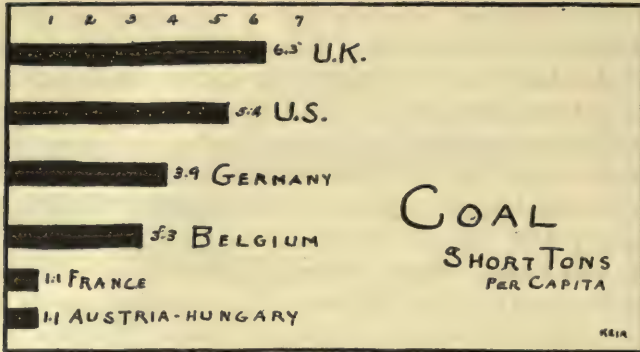 1 2 3 4 5 6 7
6.5 U.K.
5.4 U.S.
3.9 GERMANY
3.3 BELGIUM
1.1 FRANCE
1.1 AUSTRIA-HUNGARY
COAL
SHORT TONS
PER CAPITA